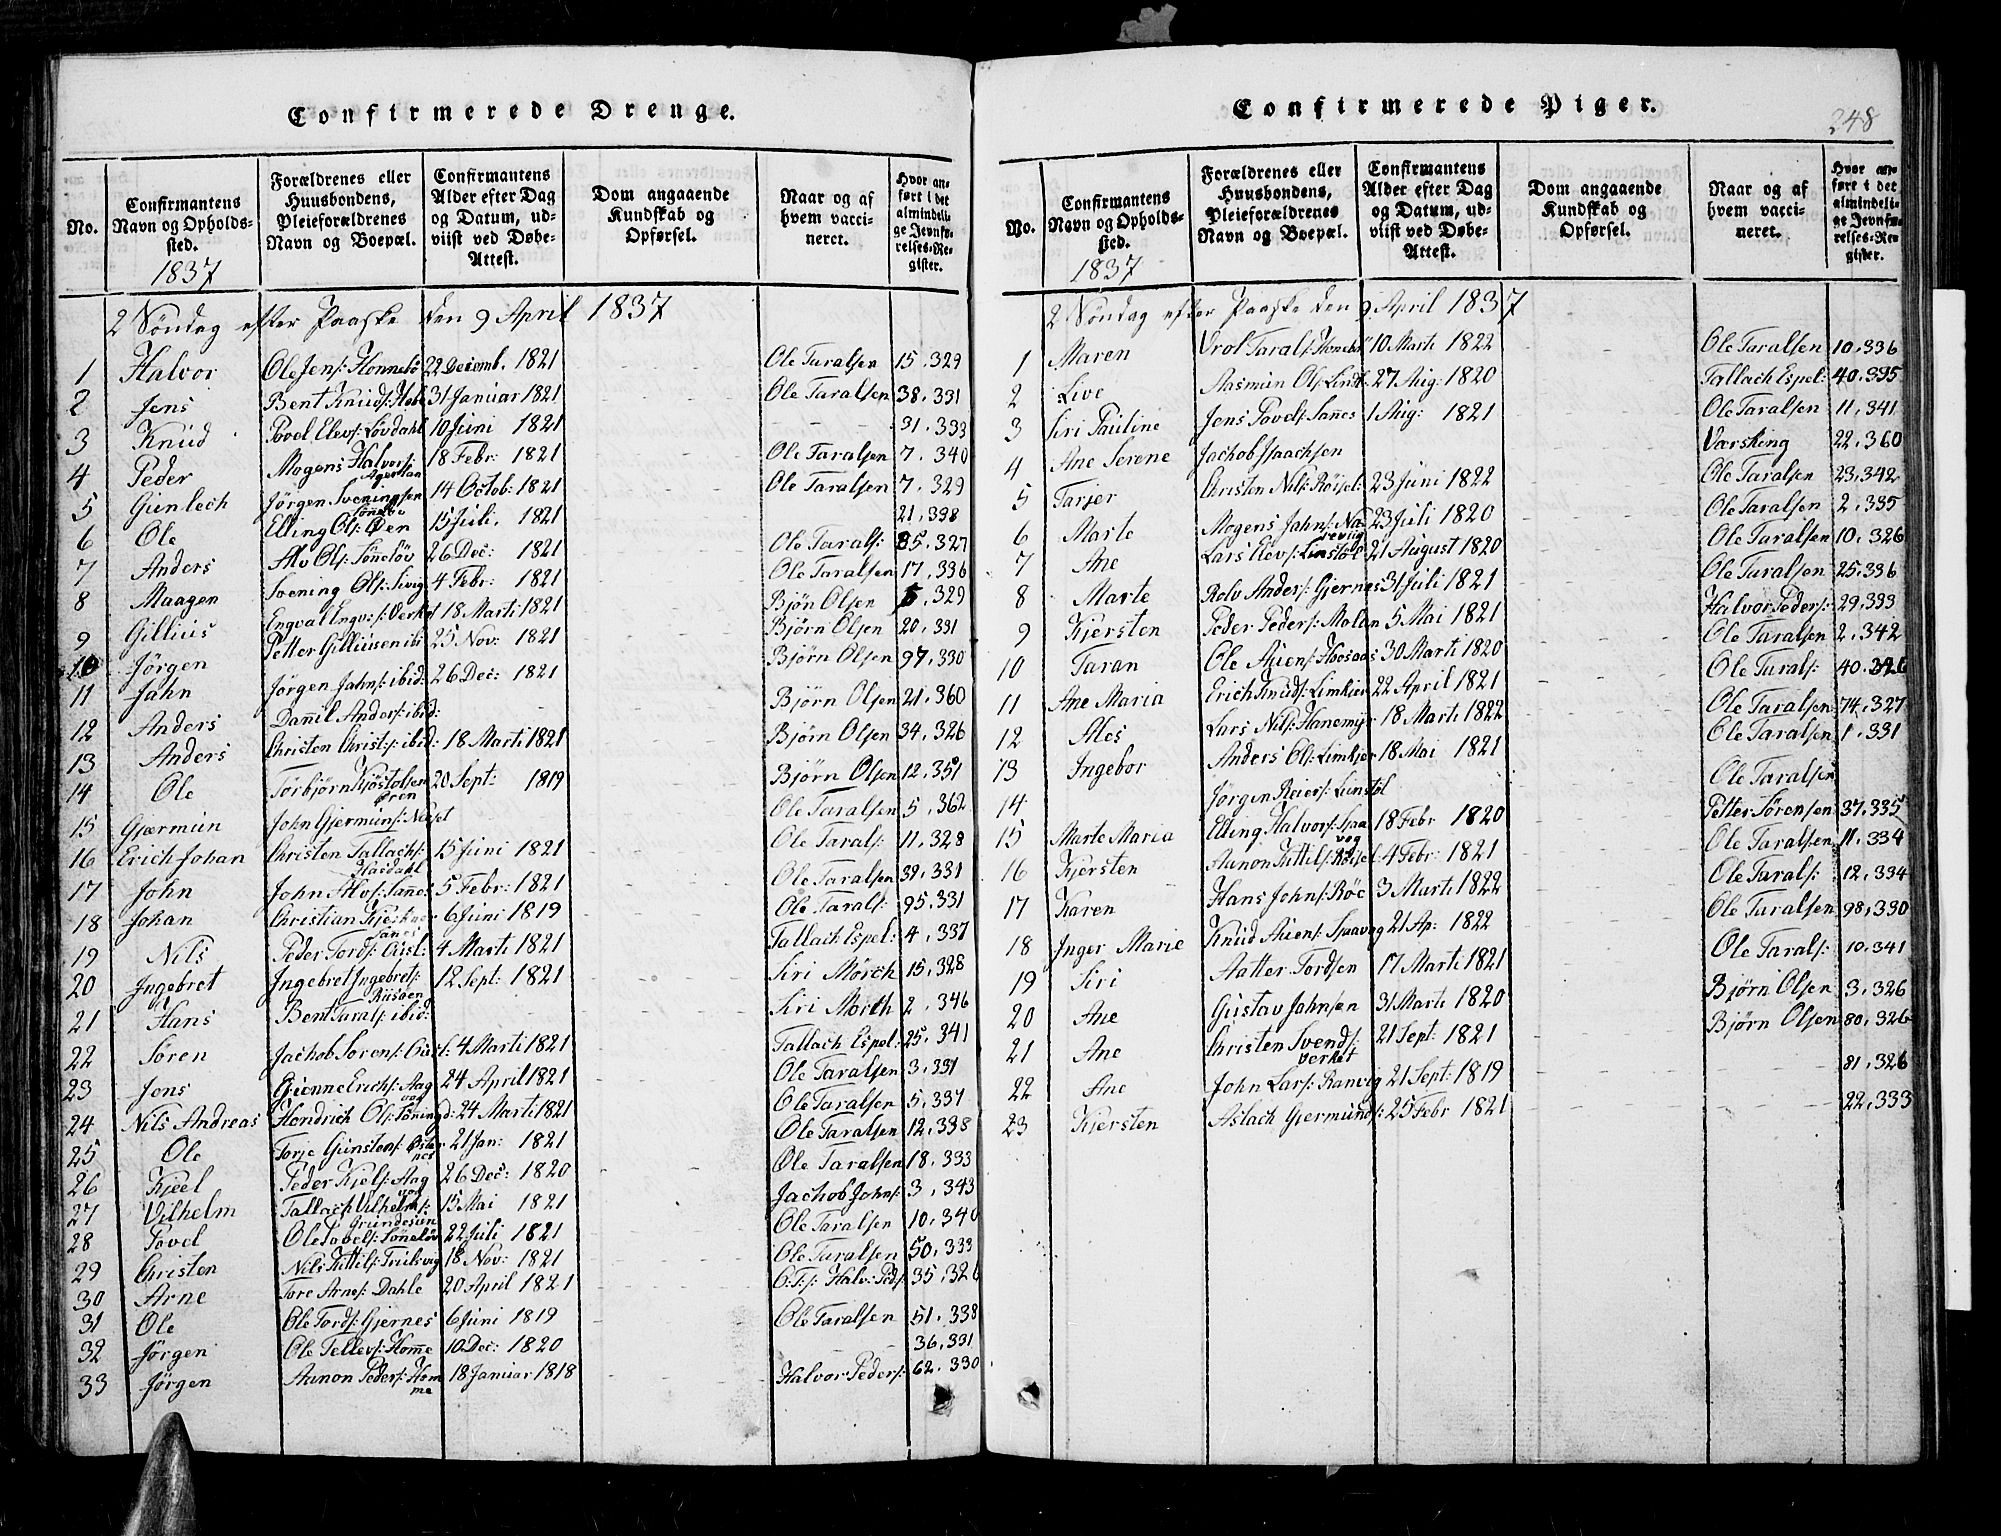 Confirmerede Drenge.
No.
Confirmantens Navn og Opholds-sted.
1837
Forældrenes eller Huusbondens, Pleieforældrenes Navn og Boepæl.
Confirmantens Alder efter Dag og Datum, ud-viist ved Døbe-Attest.
Dom angaaende Kundskab og Opførsel.
Naar og af hvem vacci-neret.
Hvor an-ført i det almindeli-ge Jevnfø-relses-Re-gister.
2 Søndag efter Paaske den 9 April 1837
1 Halvor Ole Jens: Honnebö 22 Decemb. 1821 Ole Taralsen 15, 329
2 Jens Bent Knuds: 31 Januar 1821 Ole Taralsen 38, 331
3 Knud Povel Elevs: Lövdahl 10 Juni 1821 - - - 31, 333
4 Peder Mogens Halvors: 18 Febr: 1821 Ole Taralsen 7, 340
5 Gunlech Jörgen Sveningsen 14 Octob: 1821 Ole Taralsen 7, 329
6 Ole Elling Ols: 15 Juli. 1821 21, 338
7 Anders Alv Ols: Sönnelöv 26 Dec: 1821 Ole Tarals: 85, 327
8 Maagen Svening Ols: Sivig 4 Febr: 1821 Ole Taralsen 17, 336
9 Gillius Engval Engv: Verket 18 Marti 1821 Bjön Olsen 5, 329
10 Jörgen Petter Gilliusen ibi 25 Nov: 1821 Bjørn Olsen 20, 331
11 Jahn Jörgen Jahns: ibid: 26 Dec: 1821 Bjørn Olsen 97, 330
12 Anders Dannil Anders: ibid: Bjørn Olsen 21, 360
13 Anders Christen Christ: ibid: 18 Marti 1821 Bjørn Olsen 34, 326
14 Ole Torbjörn Kjöstolsen Ören 20 Sept: 1819 Bjørn Olsen 12, 351
15 Gjermun John Gjermuns: Ole Taralsen 5, 362
16 Erich Johan Christen Tallachs: 15 Juni 1821 Ole Tarals: 11, 328
17 John John Alvs: Sannes 5 Febr: 1821 Ole Taralsen 39, 331
18 Johan Christian 6 Juni 1819 Ole Tarals: 95, 331
19 Nils Peder Tords: 4 Marti 1821 Tallach Espel: 4, 337
20 Ingebret Ingebret Ingebrets: Riisöen 12 Sept: 1821 Siri Mörch 15, 328
21 Hans Bent Tarals: ibid: Siri Mörch 2, 346
22 Sören Jachob Sörens: 4 Marti 1821 Tallach Espel: 25, 341
23 Jens Erichs: Aag vag 24 April 1821 Ole Taralsen 3, 331
24 Nils Andreas Hendrich Ols: 24 Marti 1821 Ole Taralsen 5, 337
25 Ole Torje Gunstens: 21 Jan: 1821 Ole Taralsen 12, 338
26 Kjeel Peder Kjels: Aag vag 26 Dec: 1820 Ole Taralsen 18, 333
27 Vilhelm Tallach Vilhelms: Grundesun 15 Mai 1821 Jachob Johns: 3, 343
28 Povel Ole Sönelöv 22 Juli 1821 Ole Taralsen 10, 340
29 Christen Nils Kittils: 18 Nov: 1821 Ole Taralsen 50, 333
30 Arne Tore Arnes: Dahle 20 April 1821 O:T:s: Halv: Peds: 35, 326
31 Ole Ole Tords: Gjernes 6 Juni 1819 Ole Taralsen 51, 338
32 Jörgen Ole Tellevs: Homme 10 Dec: 1820 36, 331
33 Jörgen Aanon Peders: Homme 18 Januar 1818 Halvor Peders: 62, 330
Confirmerede Piger.
248
No.
Confirmantens Navn og Opholds-sted.
1837
Forældrenes eller Huusbondens, Pleieforældrenes Navn og Boepæl.
Confirmantens Alder efter Dag og Datum, ud-viist ved Døbe-Attest.
Dom angaaende Kundskab og Opførsel.
Naar og af hvem vacci-neret.
Hvor an-ført i det almindeli-ge Jevnfø-relses-Re-gister.
2 Söndag efter Paaske den 9 April 1837
1 Maren Tarals: 10 Marti 1822 Ole Taralsen 10, 336
2 Live Aasmun Ols: 27 Aug: 1820 Tallach Espel: 40, 335
3 Siri Pauline Jens Povels: Sanes 1 Aug: 1821 Ole Taralsen 11, 341
4 Ane Serene Jachob Isaachsen Værsking 22, 360
5 Tarjer Christen Nils: Röisel: 23 Juni 1822 Ole Taralsen 23, 342
6 Marte Mogens Jahns: 23 Juli 1820 Ole Taralsen 2, 335
7 Ane Lars Elevs: 21 August 1820 Ole Taralsen 10, 326
8 Marte Rolv Anders: Gjernes 31 Juli 1821 Ole Taralsen 25, 336
9 Kjersten Peder Peders: Molen 5 Mai 1821 Halvor Peders: 29, 333
10 Taran Ole 30 Marti 1820 Ole Taralsen 2, 342
11 Ane Maria Erich Knuds: Limkjer 22 April 1821 Ole Tarals: 40, 326
12 Ales Lars Nils: Hanemyr 18 Marti 1822 Ole Taralsen 74, 327
13 Ingebor Anders Ols: Limkjer 18 Mai 1821 Ole Taralsen 1, 331
14 Jörgen Reiers: Ole Taralsen
15 Marte Maria Elling Halvors: Spaa veg 18 Febr 1820 Petter Sörensen 37, 335
16 Kjersten Aanon Kittils: Röisel: 4 Febr: 1821 Ole Taralsen 11, 334
17 Karen Hans Johns: Röe 3 Marti 1822 Ole Tarals: 12, 334
18 Inger Marie Knud Spaaveg 21 Ap: 1822 Ole Taralsen 98, 330
19 Siri Aatter Tordsen 17 Marti 1821 Ole Tarals: 10, 341
20 Ane Gustav Johnsen 31 Marti 1820 Bjørn Olsen 3, 326
21 Ane Christen Svends: Verket 21 Sept: 1821 Bjørn Olsen 80, 326
22 Ane John Lars: Ranvig 21 Sept: 1819 81, 326
23 Kjersten Aslach Gjermunds: 25 Febr 1821 22, 333